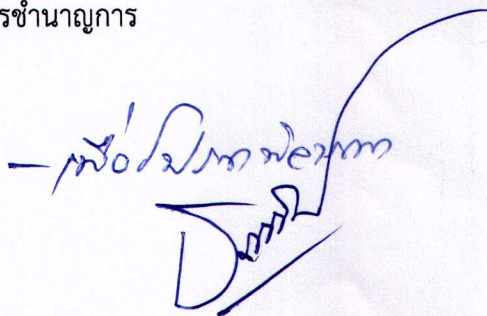 รชำนาญการ
- เพื่อโปรดพิจารณา